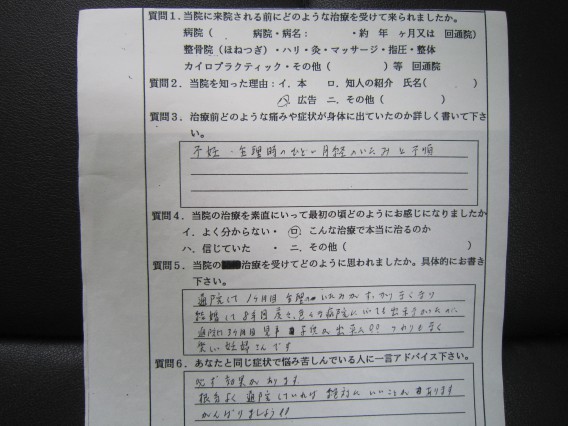 質問1．当院に来院される前にどのような治療を受けて来られましたか。
病院（　　　病院・病名：　　　・約　年　ヶ月又は　回通院）
整骨院（ほねつぎ）・ハリ・灸・マッサージ・指圧・整体
カイロプラクティック・その他（　　　　）等　回通院
質問2．当院を知った理由：イ．本　ロ．知人の紹介　氏名（　　　　）
ハ 広告　ニ．その他（　　　　　）
質問3．治療前どのような痛みや症状が身体に出ていたのか詳しく書いて下さ
い。
不妊・生理時のひどい月経のいたみと不順
質問4．当院の治療を素直にいって最初の頃どのようにお感じになりましたか
イ．よく分からない・　ロ．こんな治療で本当に治るのか
ハ．信じていた　・　ニ．その他（　　　　　　　　）
質問5．当院の治療を受けてどのように思われましたか。具体的にお書き
下さい。
通院して1ヶ月目 生理のいたみがすっかりなくなり
結婚して8年目 色々な病院にいっても出来なかったのに
通院3ヶ月目 子供が出来ました!! つわりもなく
楽しい妊婦さんです
質問6．あなたと同じ症状で悩み苦しんでいる人に一言アドバイス下さい。
必ず効果があります
根気よく通院していれば絶対にいいことがあります
がんばりましょう!!